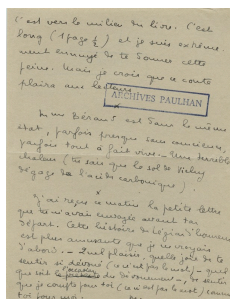 c'est vers le milieu du livre. C'est
long (1 page ½) et je suis extrême-
ment ennuyé de te donner cette
peine. Mais je crois que ce conte
plaira aux lecteurs.
ARCHIVES PAULHAN
x
est dans le même
état, parfois presque sans connaissance,
parfois tout à fait vive. Une terrible
chaleur (tu sais que le sol de Vichy
dégage de l'acide carbonique).
x
J'ai reçu ce matin la petite lettre
que tu m'avais envoyée avant ton
départ. Cette histoire de Légion d'honneur
est plus amusante que je ne croyais
d'abord. quelle joie de te
sentir si dévoué (ce n'est pas le mot)
que je compte pour toi (ce n'est pas le mot)